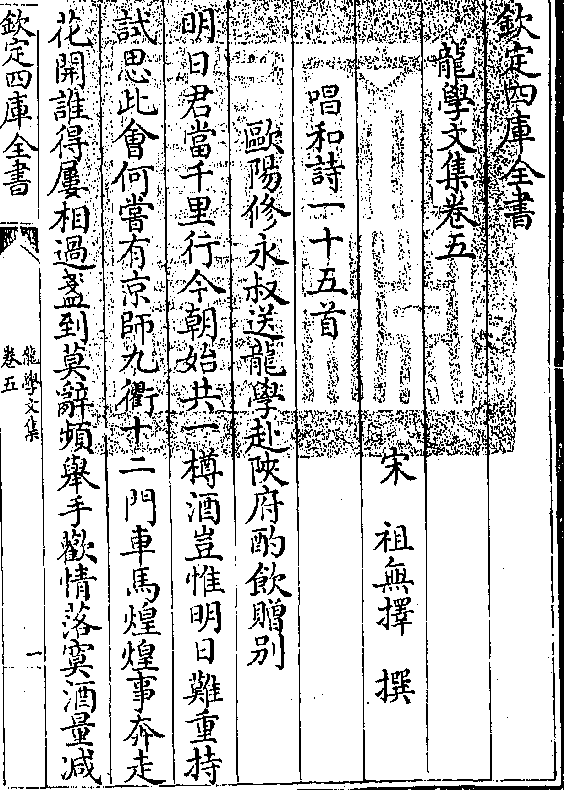 欽定四庫全書
龍學文集卷五
宋 祖無擇 撰
唱和詩一十五首
歐陽修永叔送龍學赴陜府酌飲贈别
明日君當千里行今朝始共一樽酒豈惟明日難重持
試思此會何嘗有京師九衢十二門車馬煌煌事奔走
花開誰得屢相過盞到莫辭頻舉手歡情落寞酒量减
欽定四庫全書
龍學文集
卷五
一